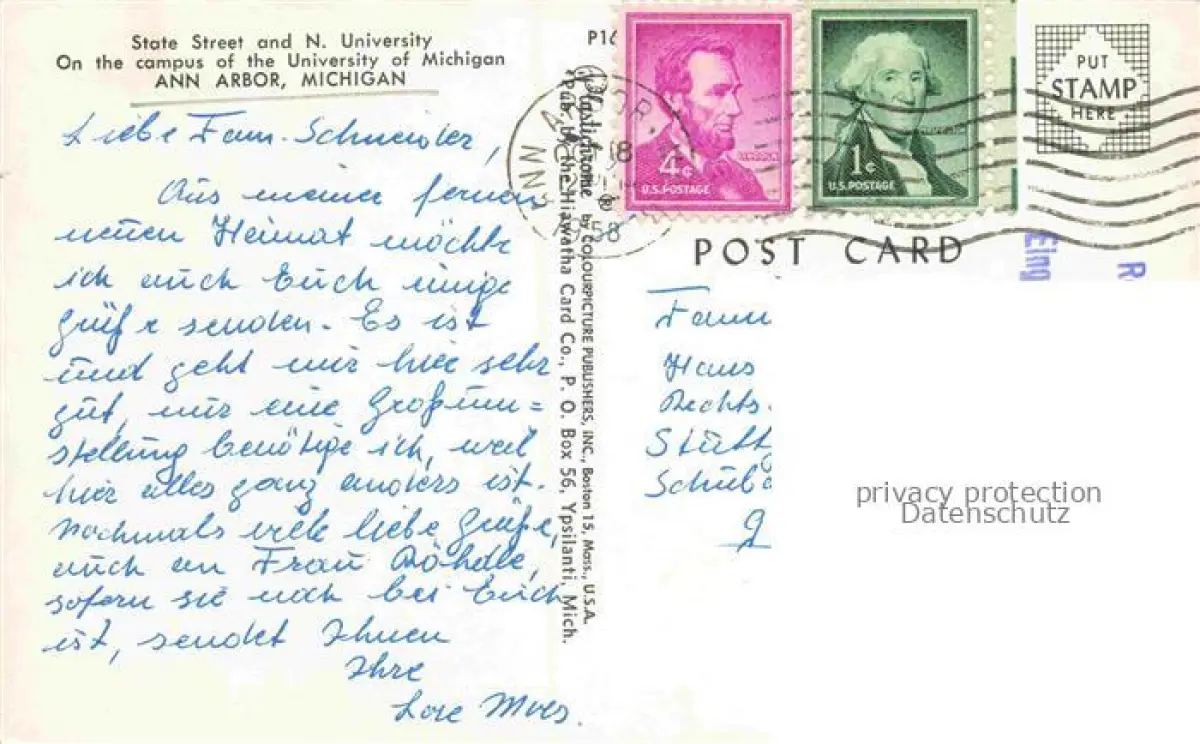 State Street and N. University
On the campus of the University of Michigan
ANN ARBOR, MICHIGAN
Liebe Fam. Schneider,
Aus meiner fernen
neuen Heimat möchte
ich auch Euch einige
Grüße senden. Es ist
und geht mir hier sehr
gut, nur eine Großum=
stellung benötige ich, weil
hier alles ganz anders ist.
Nochmals viele liebe Grüße,
auch an Frau
sofern sie noch bei Euch
ist, sendet Ihnen
Ihre
Lore
Plastichrome ® by COLOURPICTURE PUBLISHERS, INC., Boston 15, Mass., U.S.A.
Pub. by the Hiawatha Card Co., P. O. Box 56, Ypsilanti, Mich.
P16
4¢
LINCOLN
U.S. POSTAGE
1¢
U.S. POSTAGE
PUT
STAMP
HERE
18
58
POST CARD
Eing
R
Fam
Hans
Rechts.
Stutt
Schub
privacy protection
Datenschutz